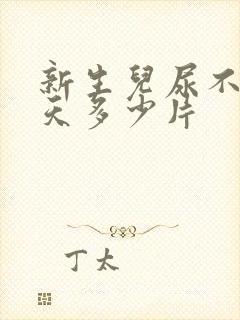 新生兒尿不
天多少片
丁太